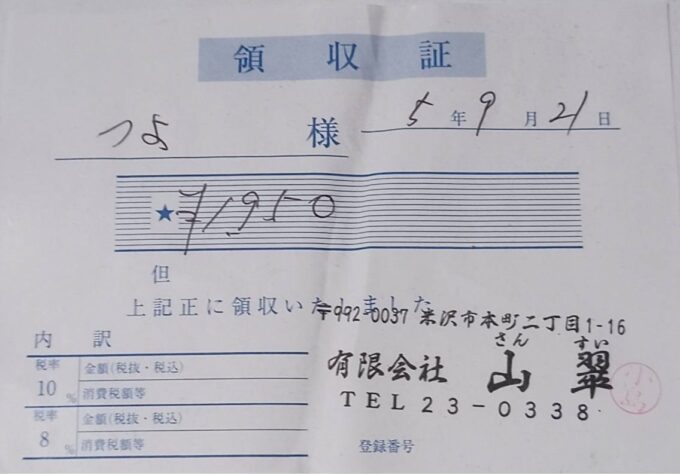 領収証
つよ 様 5年9月21日
★ ¥1,950
但
上記正に領収いたしました
〒992-0037 米沢市本町二丁目1-16
さん すい
有限会社 山翠
TEL23-0338
内訳
税率 10% 金額(税抜・税込)
消費税額等
税率 8% 金額(税抜・税込)
消費税額等
登録番号
小島